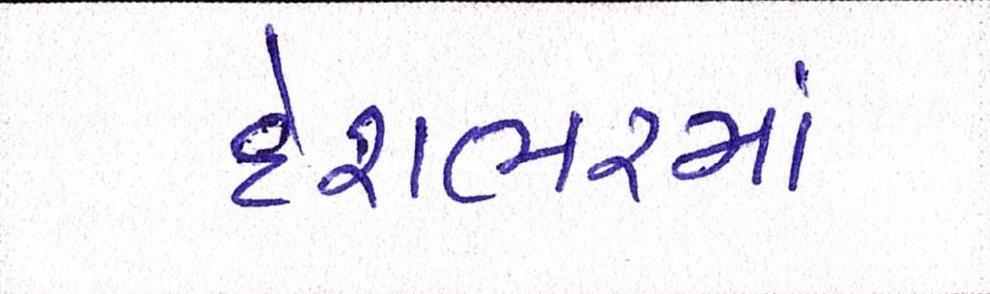 દેશભરમાં